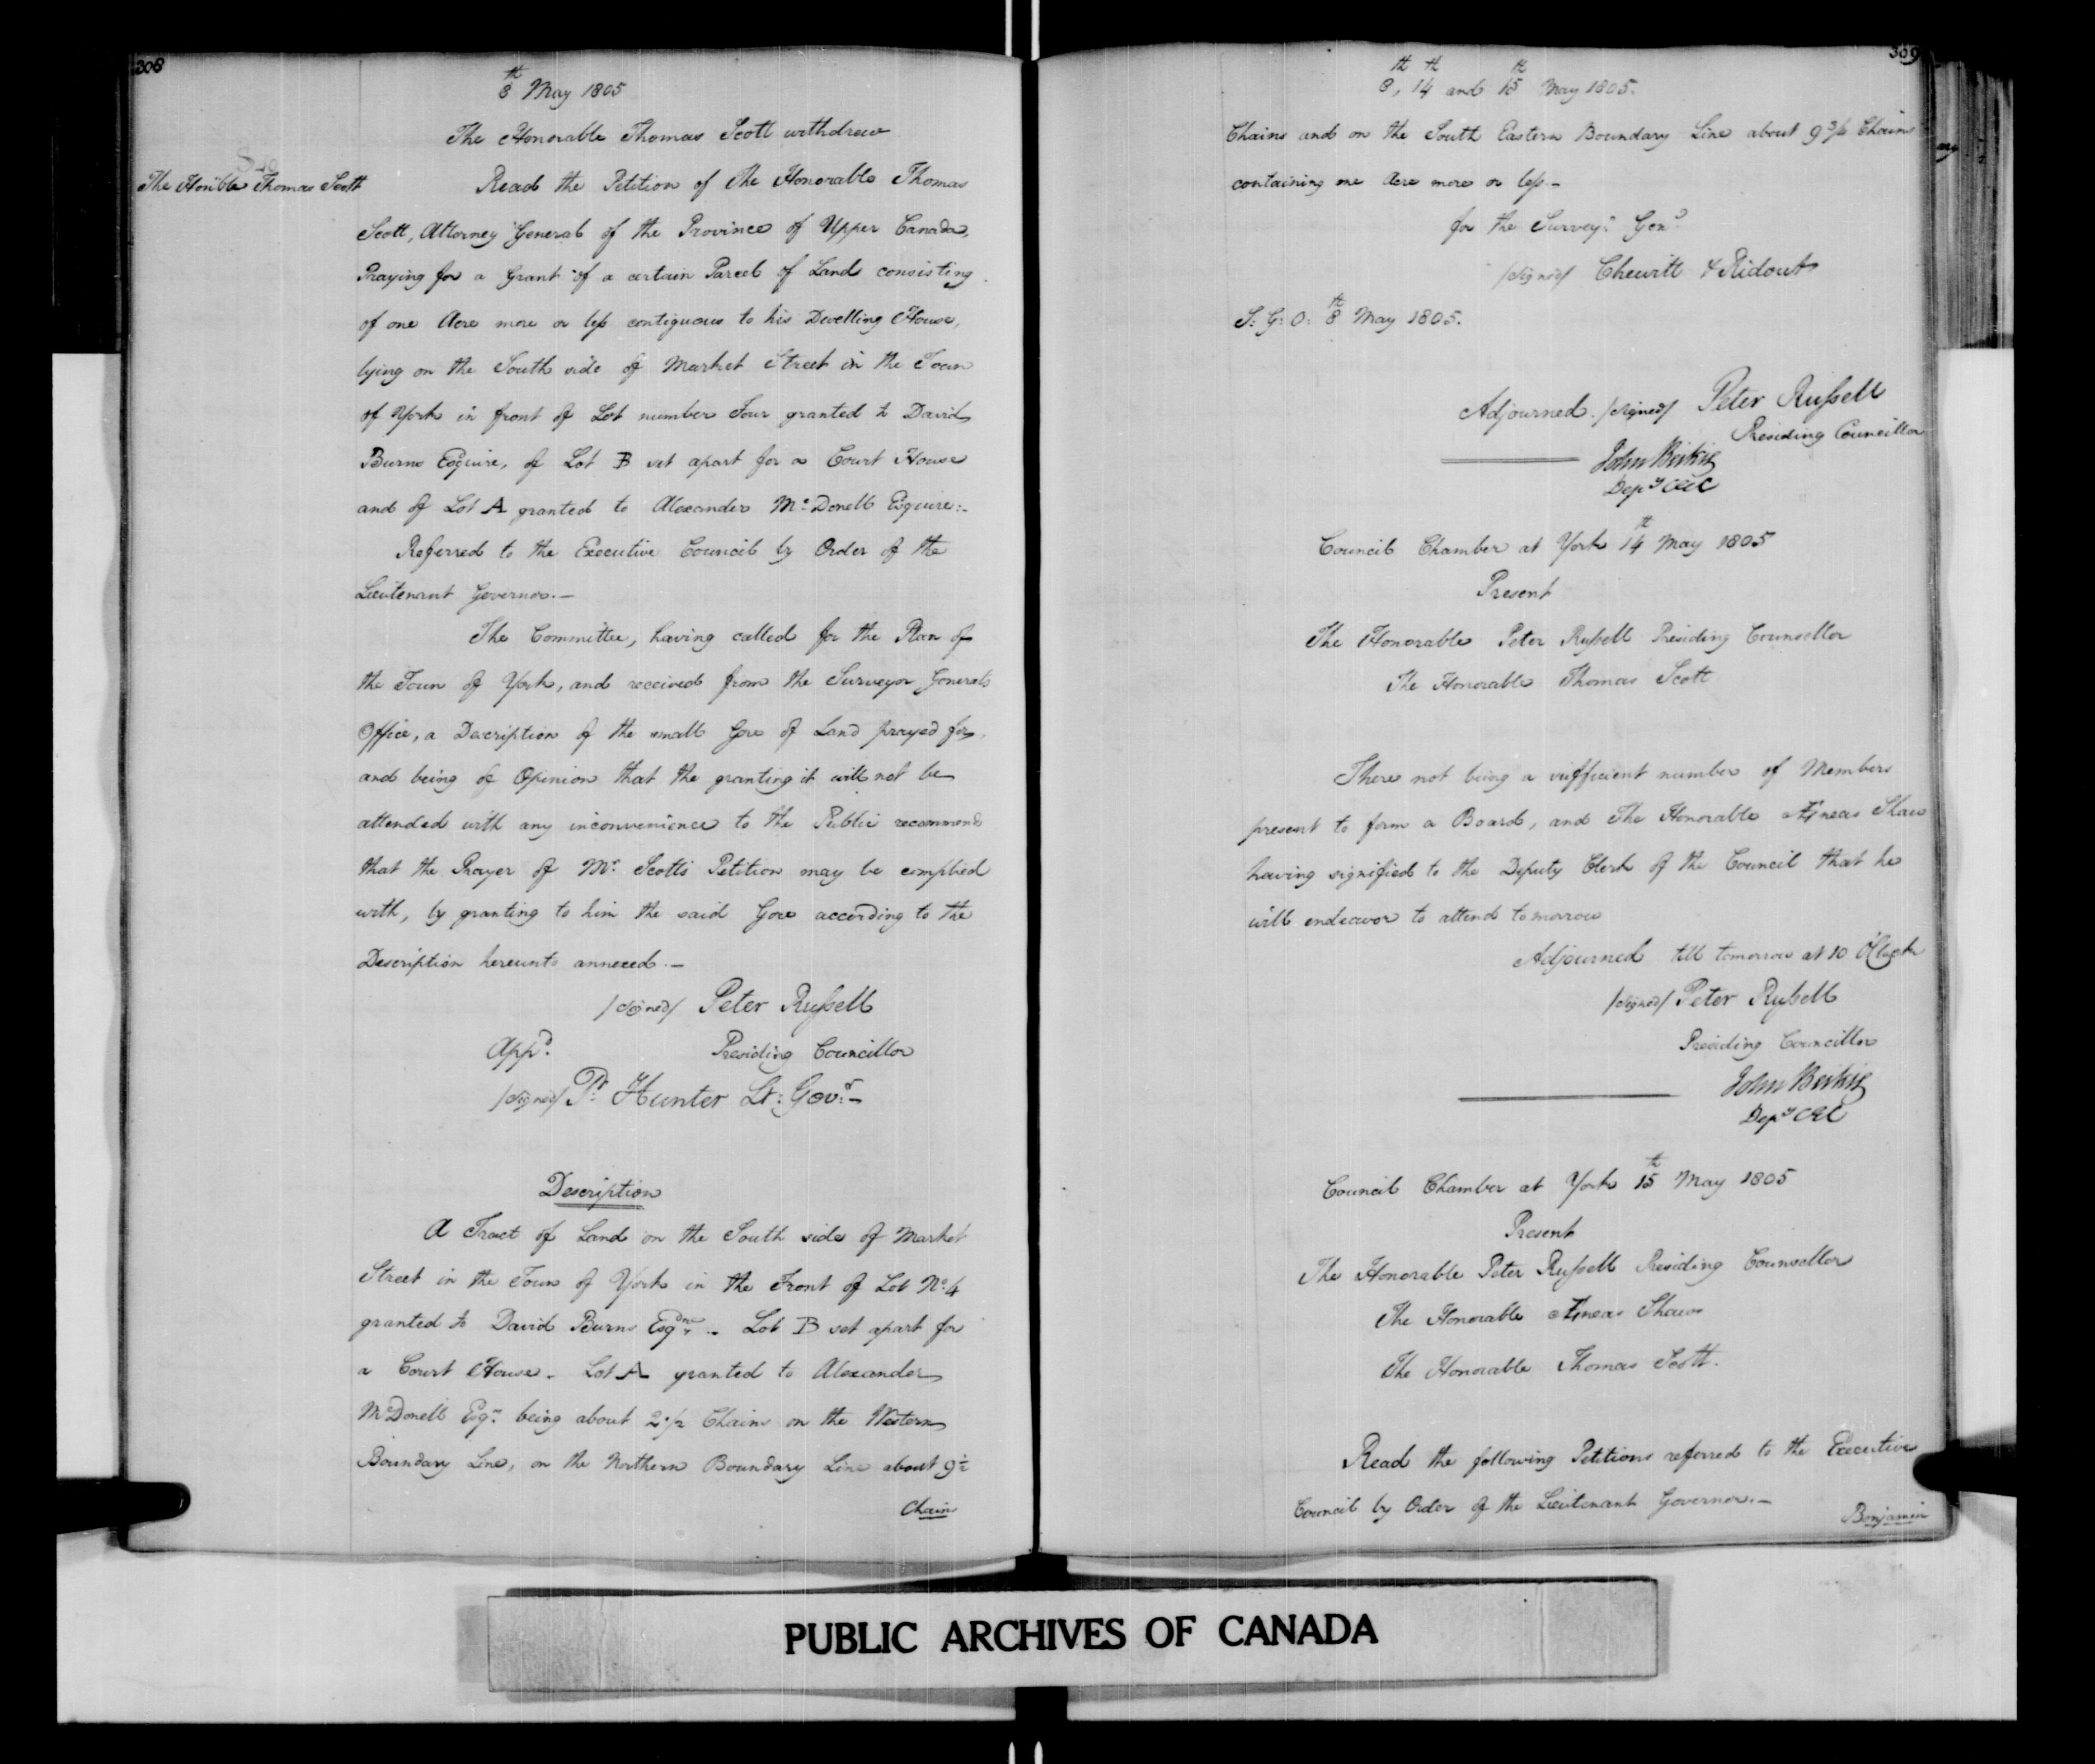 308
8th May 1805
The Honorable Thomas Scott withdrew
The Hon'ble Thomas Scott
Read the Petition of The Honorable Thomas
Scott, Attorney General of the Province of Upper Canada,
Praying for a Grant of a certain Parcel of Land consisting
of one Acre more or less contiguous to his Dwelling House,
lying on the South side of Market Street in the Town
of York in front of Lot number Four granted to David
Burns Esquire, of Lot B set apart for a Court House
and of Lot A granted to Alexander McDonell Esquire:-
Referred to the Executive Council by Order of the
Lieutenant Governor.-
The Committee, having called for the Plan of
the Town of York, and received from the Surveyor Generals
Office, a Description of the small Gore of Land prayed for,
and being of Opinion that the granting it will not be
attended with any inconvenience to the Public recommends
that the Prayer of Mr. Scott's Petition may be complied
with, by granting to him the said Gore according to the
Description hereunto annexed.-
/signed/ Peter Russell
Appd. Presiding Councillor
/signed/ Pr. Hunter Lt: Govr:-
Description
A Tract of Land on the South side of Market
Street in the Town of York in the Front of Lot No. 4
granted to David Burns Esqr. - Lot B set apart for
a Court House - Lot A granted to Alexander
McDonell Esqr. being about 2 1/2 Chains on the Western
Boundary Line, on the Northern Boundary Line about 9 1/2
Chains
309
8th, 14th and 15th May 1805.
Chains and on the South Eastern Boundary Line about 9 3/4 Chains
containing one Acre more or less.-
for the Surveyr. Genl.
/signed/ Chewitt & Ridout
S: G: O: 8th May 1805.
Adjourned. /signed/ Peter Russell
Presiding Councillor
John Beikie
Depy CEC
Council Chamber at York 14th May 1805
Present
The Honorable Peter Russell Presiding Counsellor
The Honorable Thomas Scott
There not being a sufficient number of Members
present to form a Board, and The Honorable Æneas Shaw
having signified to the Deputy Clerk of the Council that he
will endeavor to attend tomorrow
Adjourned till tomorrow at 10 O'Clock
/signed/ Peter Russell
Presiding Councillor
John Beikie
Depy CEC
Council Chamber at York 15th May 1805
Present
The Honorable Peter Russell Presiding Counsellor
The Honorable Æneas Shaw
The Honorable Thomas Scott.
Read the following Petitions referred to the Executive
Council by Order of the Lieutenant Governor.-
Benjamin
PUBLIC ARCHIVES OF CANADA